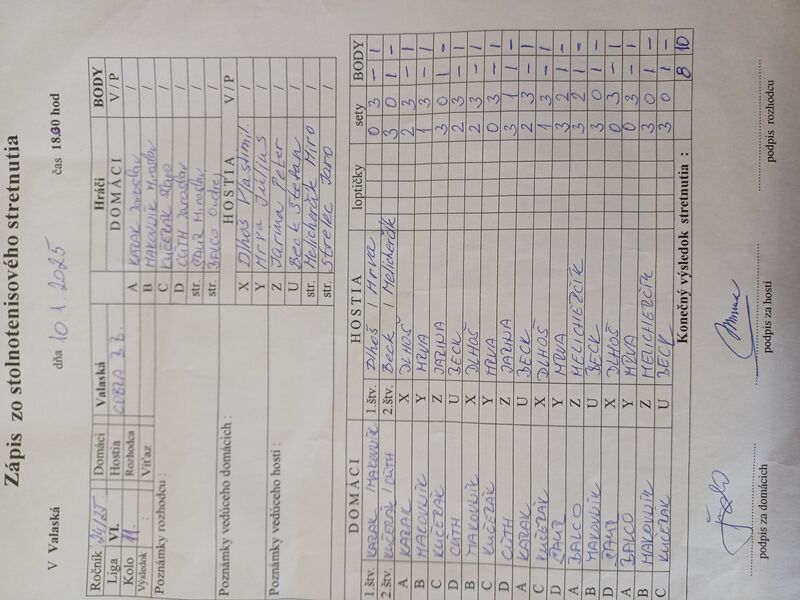 Zápis zo stolnotenisového stretnutia
V Valaská dňa 10.1.2025 čas 18.00 hod
Ročník 24/25 Domáci Valaská
Liga VI. Hostia COBRA B.B.
Kolo 11. Rozhodca
Výsledok : Víťaz
Poznámky rozhodcu :
Poznámky vedúceho domácich :
Poznámky vedúceho hostí :
Hráči BODY
DOMÁCI V/P
A KARAK Jaroslav /
B MAKOVNÍK Miroslav /
C KUČERÁK /
D CÚTH Jaroslav /
str. Miroslav /
str. BALCO Ondrej /
HOSTIA V/P
X Dlhoš Vlastimil /
Y Mrva Július /
Z Jarina Peter /
U Beck Štefan /
str. Melicherčík Miro /
str. Strelec Jaro /
DOMÁCI HOSTIA loptičky sety BODY
1.štv. KARAK / MAKOVNÍK 1.štv. Dlhoš / Mrva 0 3 - 1
2.štv. KUČERÁK / CÚTH 2.štv. Beck / Melicherčík 3 0 1 -
A KARAK X DLHOŠ 2 3 - 1
B MAKOVNÍK Y MRVA 1 3 - 1
C KUČERÁK Z JARINA 3 0 1 -
D CÚTH U BECK 2 3 - 1
B MAKOVNÍK X DLHOŠ 2 3 - 1
C KUČERÁK Y MRVA 0 3 - 1
D CÚTH Z JARINA 3 1 1 -
A KARAK U BECK 2 3 - 1
C KUČERÁK X DLHOŠ 1 3 - 1
D Y MRVA 3 2 1 -
A BALCO Z MELICHERČÍK 3 2 1 -
B MAKOVNÍK U BECK 3 0 1 -
D X DLHOŠ 0 3 - 1
A BALCO Y MRVA 0 3 - 1
B MAKOVNÍK Z MELICHERČÍK 3 0 1 -
C KUČERÁK U BECK 3 0 1 -
Konečný výsledok stretnutia : 8 10
podpis za domácich podpis za hostí podpis rozhodcu